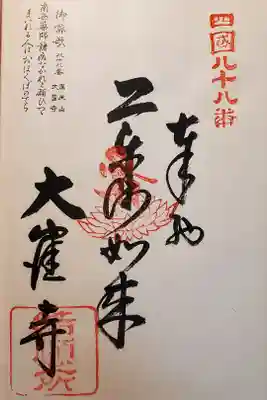 四國八十八番
奉納
御詠歌 八十八番 医王山
大窪寺
南無薬師諸病なかれと願ひつゝ
まいれる人はおほくぼのてら
如来
大窪寺
結願所